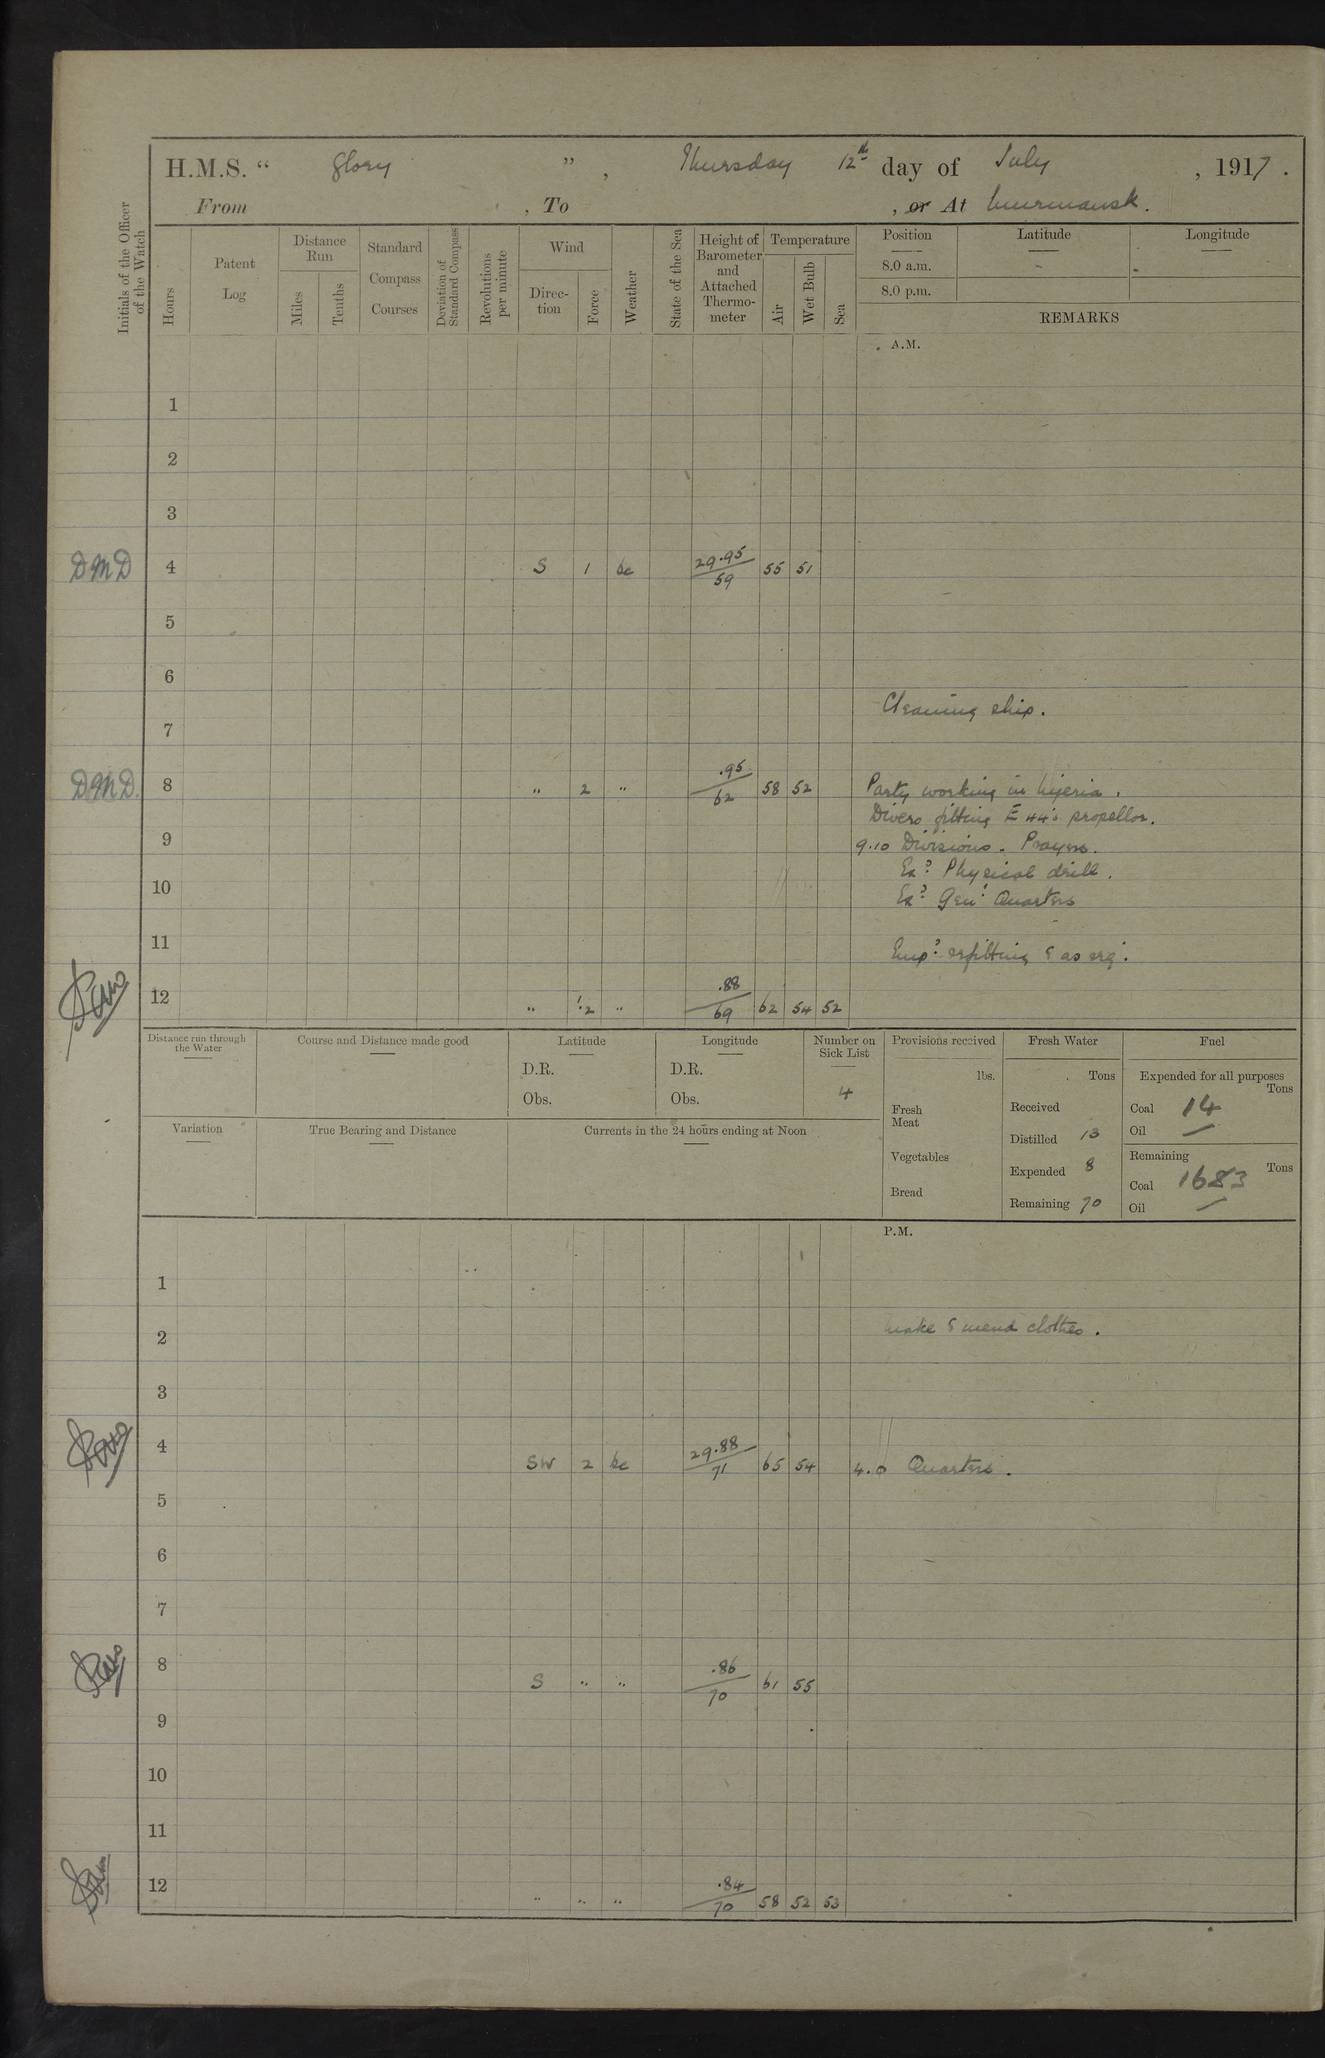 H.M.S. “ Glory ”, Thursday 12th day of July, 1917.
From , To , or At Murmansk.
Initials of the Officer of the Watch
Hours
Patent Log
Distance Run
Miles
Tenths
Standard Compass Courses
Deviation of Standard Compass
Revolutions per minute
Wind
Direction
Force
Weather
State of the Sea
Height of Barometer and Attached Thermometer
Temperature
Air
Wet Bulb
Sea
Position
Latitude
Longitude
8.0 a.m.
8.0 p.m.
REMARKS
A.M.
1
2
3
DMD 4 S 1 bc 29.95/59 55 51
5
6
Cleaning ship.
7
DMD. 8 " 2 " .95/62 58 52 Party working in Nigeria.
Divers fitting E 44's propellor.
9 9.10 Divisions. Prayers.
Exd Physical drill.
10 Exd Genl Quarters
11 Empd refitting & as req.
12 " 1.2 " .88/69 62 54 52
Distance run through the Water
Course and Distance made good
Latitude
D.R.
Obs.
Longitude
D.R.
Obs.
Number on Sick List
4
Provisions received
lbs.
Fresh Meat
Vegetables
Bread
Fresh Water
Tons
Received
Distilled 13
Expended 8
Remaining 70
Fuel
Expended for all purposes
Tons
Coal 14
Oil —
Remaining
Tons
Coal 1683
Oil —
Variation
True Bearing and Distance
Currents in the 24 hours ending at Noon
P.M.
1
2 Make & mend clothes.
3
4 SW 2 bc 29.88/71 65 54 4.0 Quarters.
5
6
7
8 S " " .86/70 61 55
9
10
11
12 " " " .84/70 58 52 53